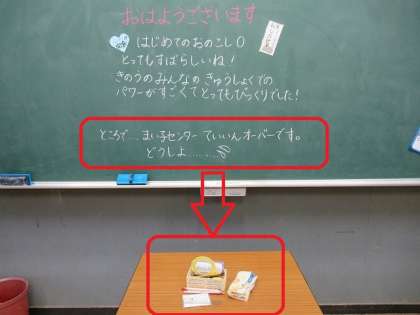 おはようございます
はじめてのおのこし0
とってもすばらしいね！
きのうのみんなのきゅうしょくでの
パワーがすごくてとってもびっくりでした！
ところで…まい子センターていいんオーバーです。
どうしよ………